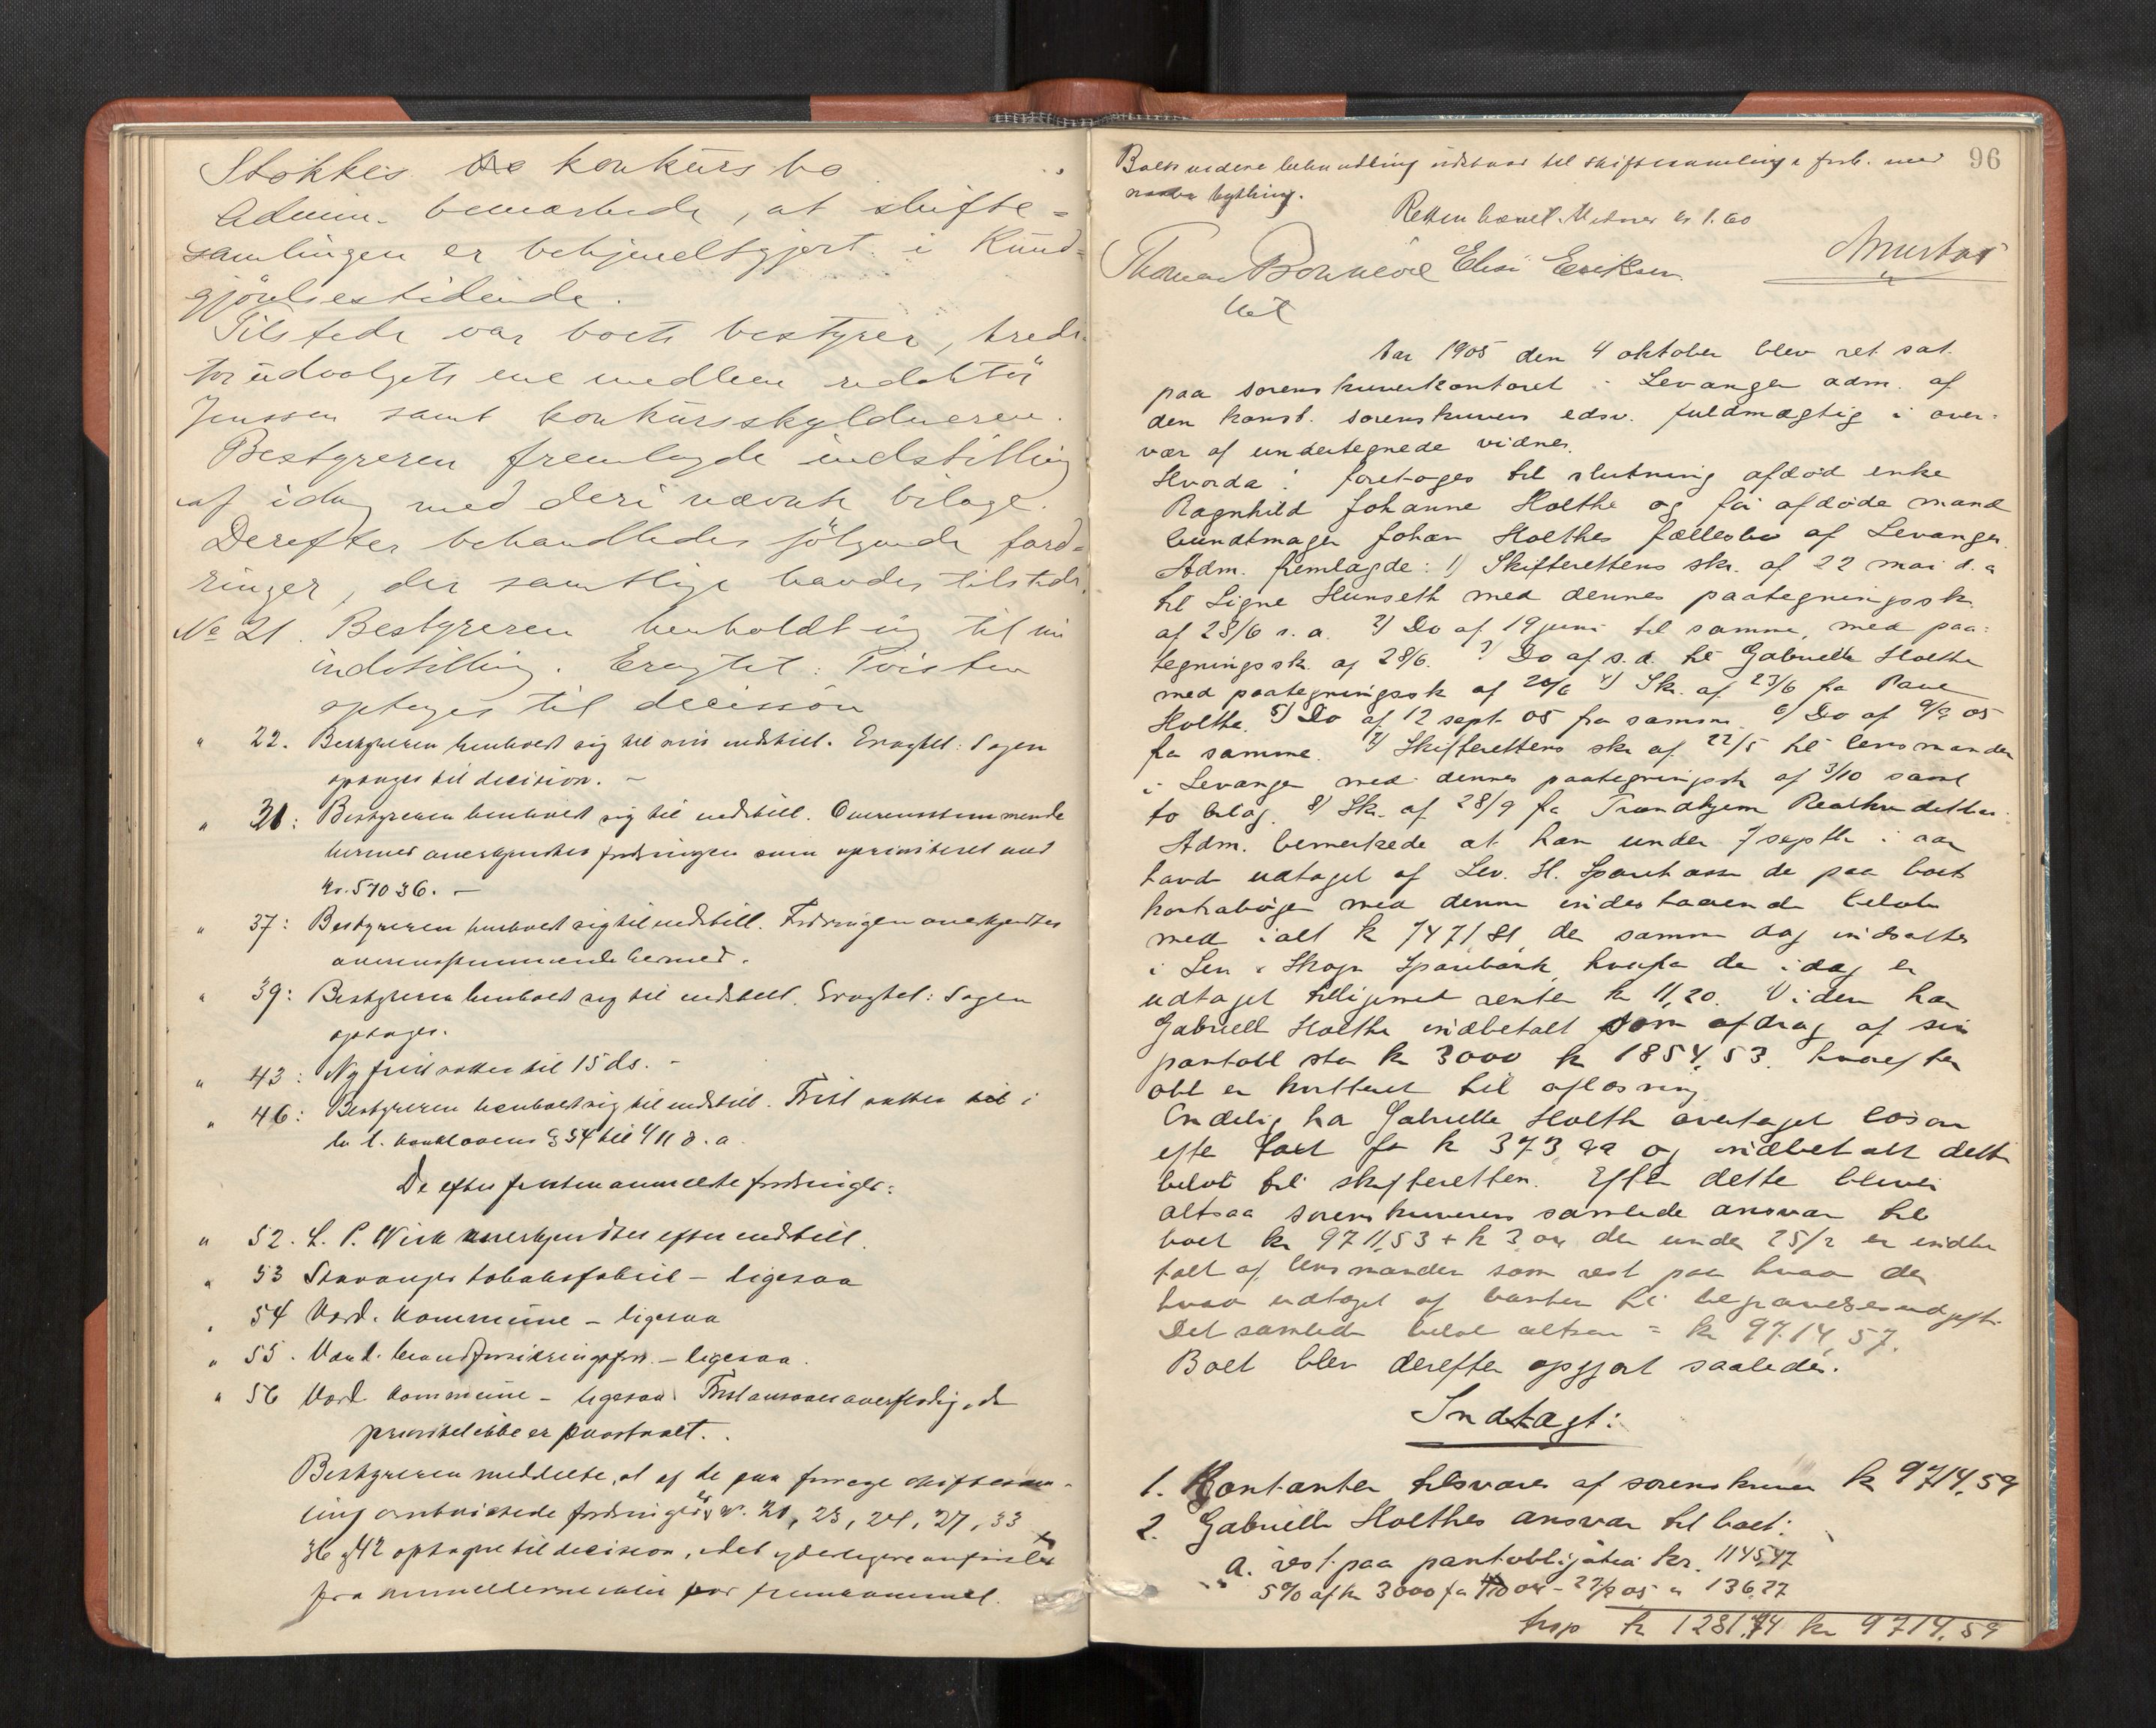 Stokkes konkurs bo
Admin. bemærkede, at skifte=
samlingen er bekjendtgjort i Kund=
gjörelsestidende.
Tilstede var boets bestyrer, kredi-
torudvalgets ene medlem redaktör
Jenssen samt konkursskyldneren.
Bestyreren fremlagde indstilling
af idag med deri nævnte bilage.
Derefter behandledes fölgende ford=
ringer, der samtlige havdes tilstede.
No 21. Bestyreren henholdt sig til sin
indstilling. Eragtet: Tvisten
optages til decission
" 22. Bestyreren henholdt sig til sin indstill. Eragtet: Sagen
optages til decision. -
" 31: Bestyreren henholdt sig til indstill. Overensstemmende
hermed anerkjendtes fordringen som uprioriteret med
kr. 570 36. -
" 37: Bestyreren henholdt sig til indstill. Fordringen anerkjendtes
overensstemmende hermed.
" 39: Bestyreren henholdt sig til indstill. Eragtet: Sagen
optages.
" 43: Ny frist sattes til 15 ds. -
" 46: Bestyreren henholdt sig til indstill. Frist sattes i
h. t. konklovens § 54 til 4/11 d. a.
De efter fristen anmeldte fordringer:
" 52. L. P. Wick anerkjendtes efter indstill.
" 53 Stavanger tobaksfabrik - ligesaa
" 54 Værd. kommune - ligesaa
" 55. Værd. brandforsikringsfor. - ligesaa.
" 56 Værd. kommune - ligesaa. Frist ansaaes overflödig, da
prioritet ikke er paastaaet.
Bestyreren meddelte, at af de paa forrige skiftesam-
ling omtvistede fordringer er nr. 21, 23, 24, 27, 33
36 og 42 optagne til decision, idet yderligere
fra anmelderne ikke var fremkommet.
96
Boets videre behandling udstaar til skiftesamling i forb. med
Retten hævet. Vidner kr 1.60
Thomas Bonnevie Elise Eriksen
Mustad
Aar 1905 den 4 oktober blev ret sat
paa sorenskriverkontoret i Levanger adm. af
den konst. sorenskrivers edsv. fuldmægtig i over-
vær af undertegnede vidner.
Hvorda: foretoges til slutning afdöd enke
Ragnhild Johanne Holthe og för afdöde mand
bundtmager Johan Holthes fællesbo af Levanger.
Adm. fremlagde: 1) Skifterettens skr. af 22 mai d. a
til Signe Hunseth med dennes paategningssk.
af 28/6 s. a. 2) Do af 19 juni til samme, med paa=
tegningssk. af 28/6. 3) Do af s. d. til Gabrielle Holthe
med paategningssk af 20/6 4) Skr. af 23/6 fra Paul
Holthe. 5) Do af 12 sept. 05 fra samme. 6) Do af 9/9 05
fra samme. 7) Skifterettens skr af 22/5 til lensmanden
i Levanger med dennes paategningssk af 3/10 samt
to bilag. 8) Skr. af 28/9 fra Trondhjem
Adm. bemerkede at han under 7 septbr i aar
havde udtaget af Lev. H. Sparekasse de paa boets
kontrabøger med denne indestaaende beløb
med ialt kr 7471.81, der samme dag indsattes
i Lev. & Skogn Sparebank, hvorfra de idag er
udtaget tilligemed renter kr 11,20. Viden har
Gabrielle Holthe indbetalt som afdrag af sin
pantobl. stor kr 3000 kr 1854,53. hvorefter
obl. er kvitteret til aflösning
Endelig ha Gabrielle Holthe overtaget lösöre
efter taxt for kr 373,99 og indbetalt dette
belöb til skifteretten. Efter dette bliver
altsaa sorenskriverens samlede ansvar til
boet kr 9711,53 + kr 3,04 der under 25/2 er indbe
talt af lensmanden som rest paa hvad der
hvad udtaget af banken til begravelsesudgifter.
Det samlede belöb altsaa = kr 9714,57.
Boet blev derefter opgjort saaledes.
Indtægt:
1. Kontanter tilsvares af sorenskriver kr 9714,59
2. Gabrielle Holthes ansvar til boet:
a. rest paa pantobligation kr. 1145,47
5% af kr 3000 fra - 27/9 05 " 136,27
trsp kr 1281,74 kr 9714,59